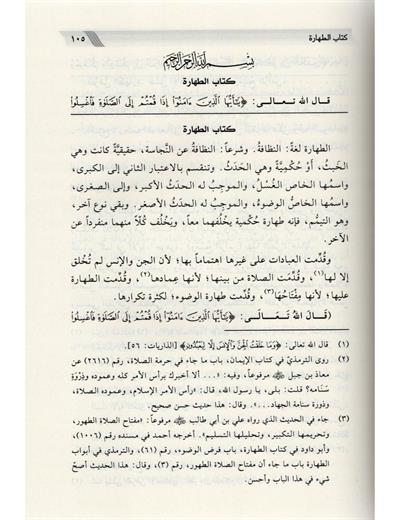 كتاب الطهارة
١٠٥
بسم الله الرحمن الرحيم
كتاب الطهارة
قال الله تعالى: ﴿يَٰٓأَيُّهَا ٱلَّذِينَ ءَامَنُوٓاْ إِذَا قُمۡتُمۡ إِلَى ٱلصَّلَوٰةِ فَٱغۡسِلُواْ
كتاب الطهارة
الطهارة لغةً: النظافةُ، وشرعاً: النظافةُ عن النَّجاسة، حقيقيَّةً كانت وهي
الخبثُ، أَوْ حُكْمِيَّةً وهي الحَدَثُ. وتنقسم بالاعتبار الثاني إلى الكبرى،
واسمُها الخاص الغُسْلُ، والموجِبُ له الحدَثُ الأكبر، وإلى الصغرى،
واسمها الخاصُّ الوضوءُ، والموجِبُ له الحدَثُ الأصغر. وبقي نوع آخر،
وهو التيمُّم، فإنه طهارة حُكمية يخلُفهما معاً، ويَخْلُف كُلّاً منهما منفرداً عن
الآخر.
وقُدِّمت العبادات على غيرها اهتماماً بها؛ لأن الجن والإنس لم تُخلق
إلا لها(١)، وقُدِّمَت الصلاة من بينها؛ لأنها عِمادها(٢)، وقُدِّمت الطهارة
عليها؛ لأنها مِفتَاحُها(٣)، وقُدِّمت طهارة الوضوء؛ لكثرة تكرارها.
(قَالَ اللهُ تَعَالَى: ﴿يَٰٓأَيُّهَا ٱلَّذِينَ ءَامَنُوٓاْ إِذَا قُمۡتُمۡ إِلَى ٱلصَّلَوٰةِ فَٱغۡسِلُواْ
(١) قال الله تعالى: ﴿وَمَا خَلَقۡتُ ٱلۡجِنَّ وَٱلۡإِنسَ إِلَّا لِيَعۡبُدُونِ﴾ [الذاريات: ٥٦].
(٢) روى الترمذيّ في كتاب الإيمان، باب ما جاء في حرمة الصلاة، رقم (٢٦١٦) عن
معاذ بن جبل ﷺ مرفوعاً، وفيه: «... ألا أخبرك برأس الأمر كله وعموده وذِرْوَة
سَنَامه؟ قلت: بلى، يا رسول الله، قال: «رأس الأمر الإسلام، وعموده الصلاة،
وذروة سنامه الجهاد...». وقال: هذا حديث حسن صحيح.
(٣) جاء في الحديث الذي رواه علي بن أبي طالب مرفوعاً: «مفتاح الصلاة الطهور،
وتحريمها التكبير، وتحليلها التسليم». أخرجه أحمد في مسنده رقم (١٠٠٦)،
وأبو داود في كتاب الطهارة، باب فرض الوضوء، رقم (٦١)، والترمذي في أبواب
الطهارة باب ما جاء أن مفتاح الصلاة الطهور، رقم (٣)، وقال: هذا الحديث أصحّ
شيء في هذا الباب وأحسن.